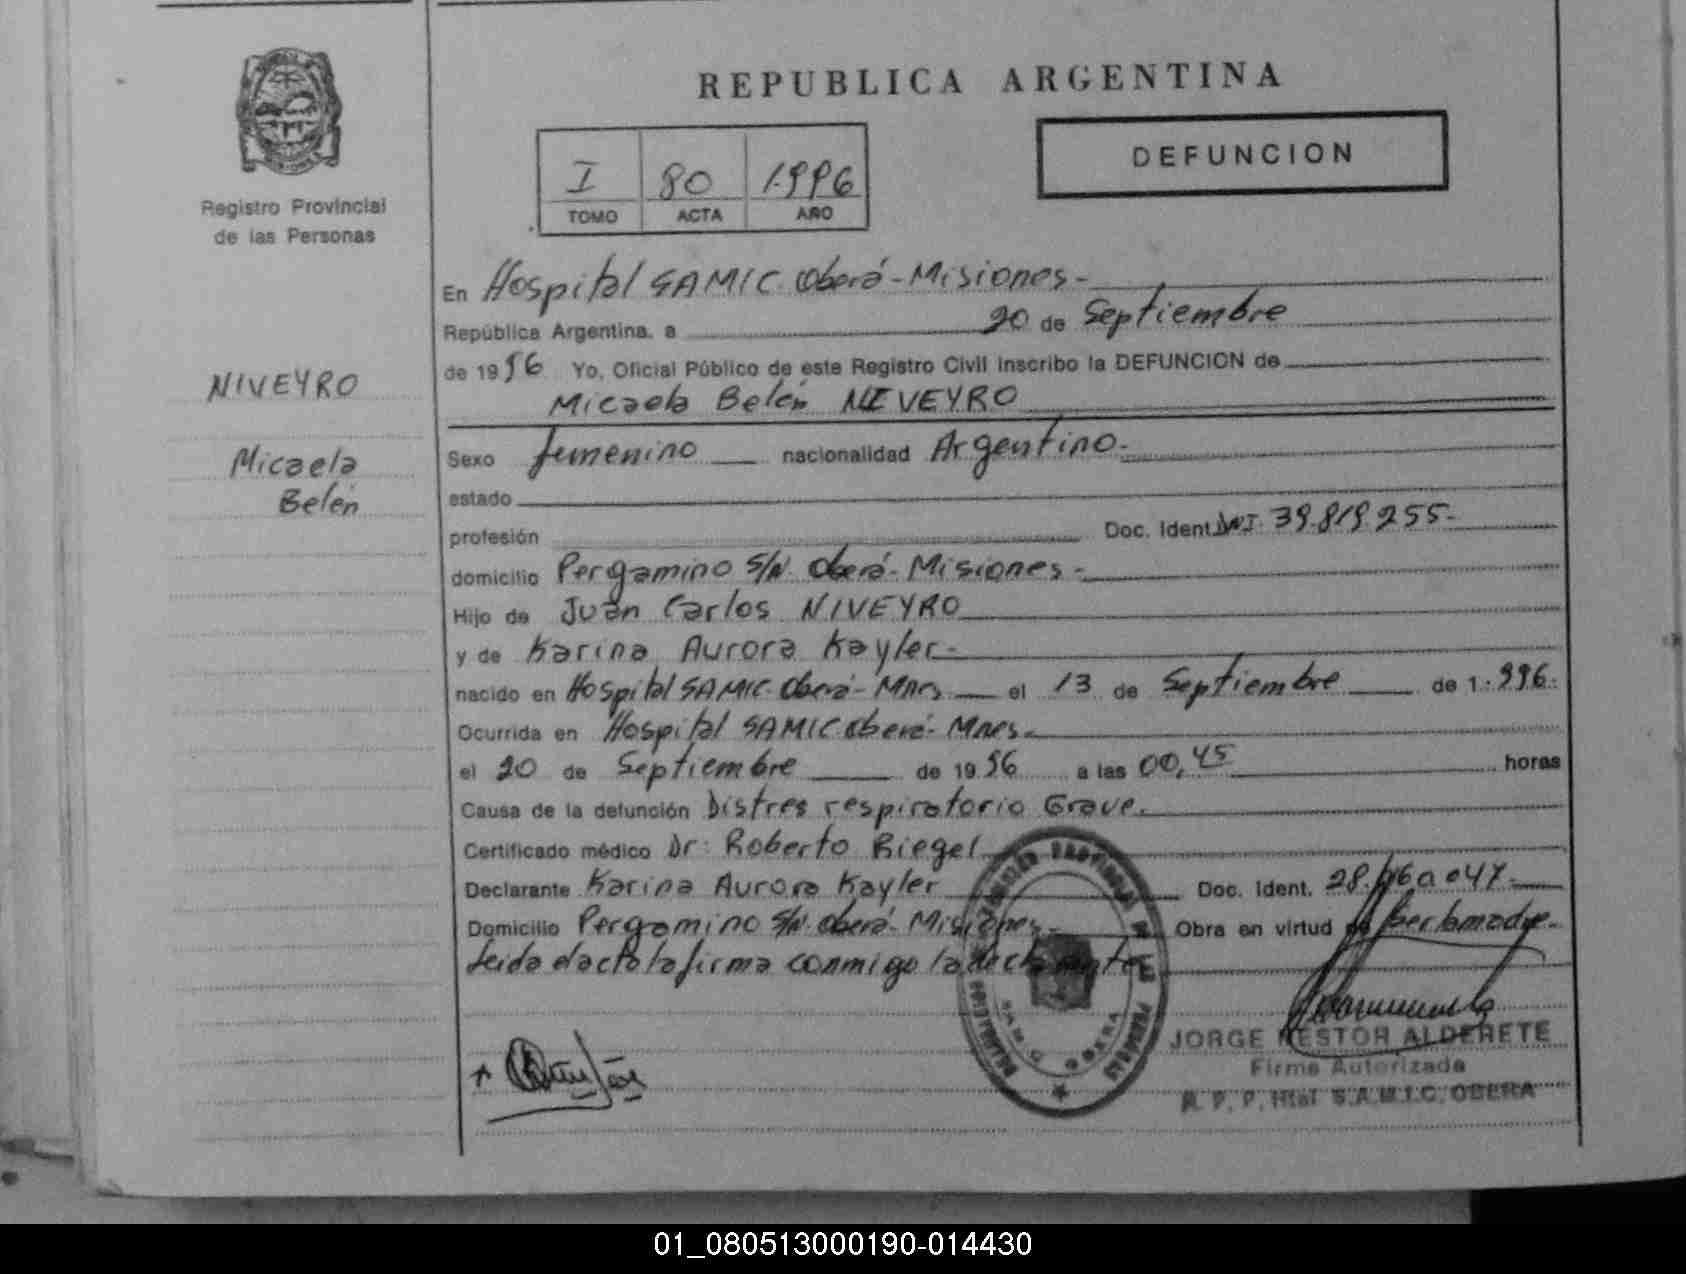 REPUBLICA ARGENTINA
DEFUNCION
I 80 1.996
TOMO ACTA AÑO
Registro Provincial
de las Personas
NIVEYRO
Micaela
Belén
En Hospital SAMIC Oberá-Misiones-
República Argentina, a 20 de Septiembre
de 1996 Yo, Oficial Público de este Registro Civil inscribo la DEFUNCION de
Micaela Belén NIVEYRO
Sexo femenino nacionalidad Argentino-
estado
profesión Doc. Ident. DNI. 39.819.255-
domicilio Pergamino S/N. Oberá-Misiones-
Hijo de Juan Carlos NIVEYRO
y de Karina Aurora Kayler-
nacido en Hospital SAMIC Oberá-Mnes el 13 de Septiembre de 1.996.
Ocurrida en Hospital SAMIC Oberá-Mnes-
el 20 de Septiembre de 1996 a las 00,45 horas
Causa de la defunción Distres respiratorio Grave.
Certificado médico Dr: Roberto Riegel
Declarante Karina Aurora Kayler Doc. Ident. 28.
Domicilio Pergamino S/N. Oberá-Misiones- Obra en virtud de ser la madre-
Leida el acta la firma conmigo la declarante
JORGE NESTOR ALDERETE
Firma Autorizada
R. P. P. Htal S.A.M.I.C. OBERA
01_080513000190-014430